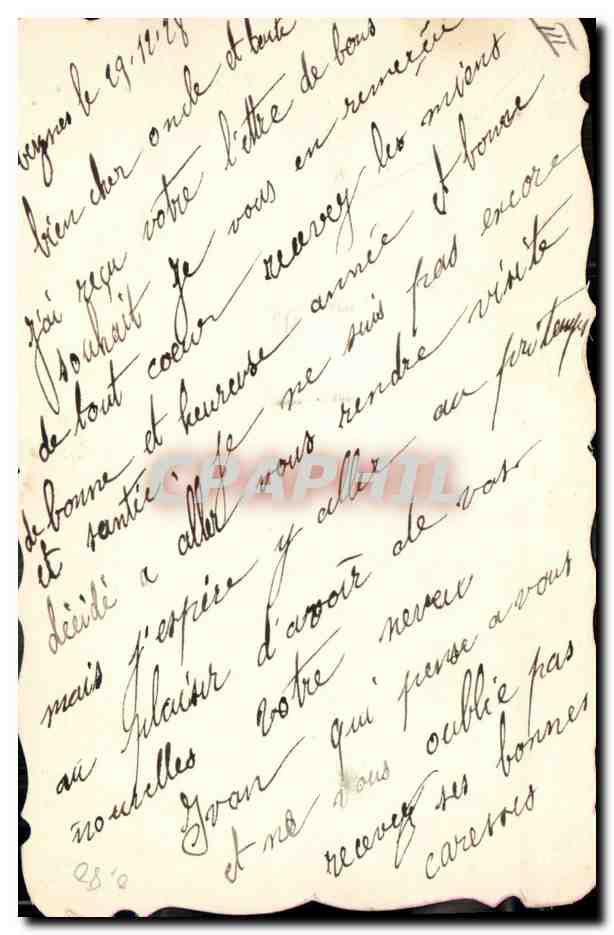 le 29-12-28
III
bien cher oncle et tente
j'ai reçu votre lettre de bons
souhait Je vous en remercie
de tout coeur recevez les miens
de bonne et heureuse année et bonne
et santée. Je ne suis pas encore
décidé a aller vous rendre visite
mais j'espère y aller au printemps
au plaisir d'avoir de vos
nouvelles votre neveu
Yvan qui pense a vous
et ne vous oublie pas
recevez ses bonnes
caresses
CPAPHIL